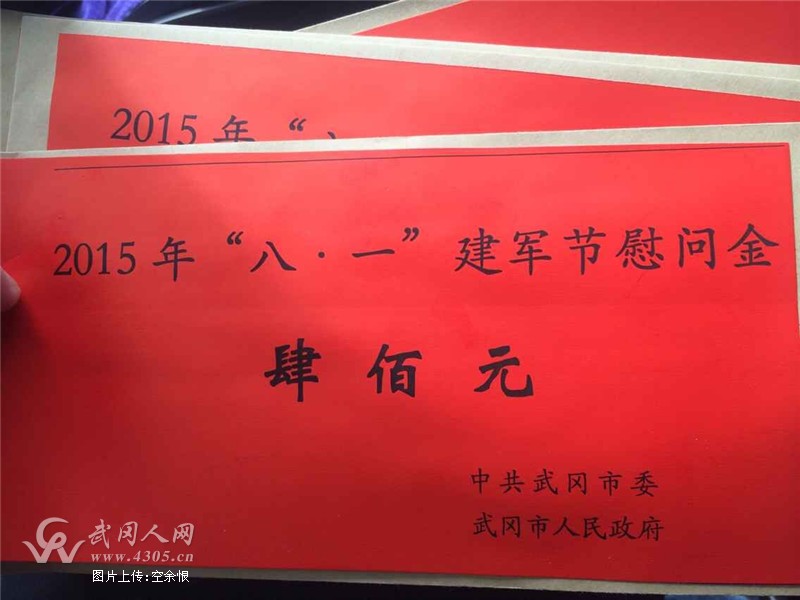 2015年“八
2015年“八·一”建军节慰问金
肆佰元
中共武冈市委
武冈市人民政府
武冈人网
www.4305.cn
图片上传:空余恨